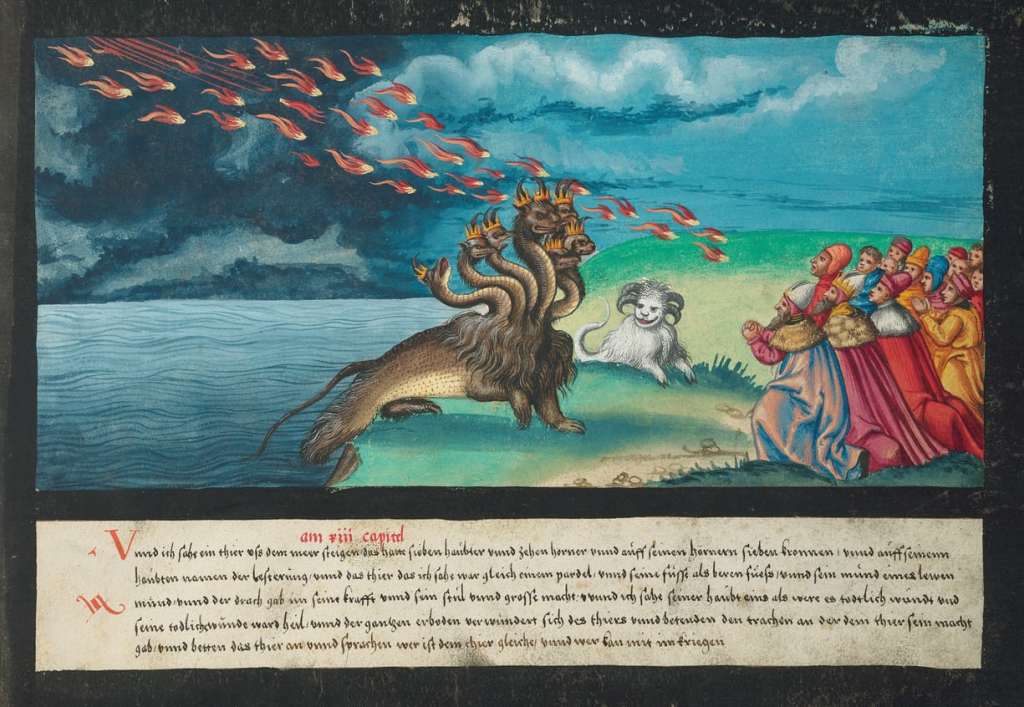 am xiii capitel
Vnnd ich sahe ein thier vss dem meer steigen, das hatte sieben haubter vnnd zehen horner vnnd auff seinen hornern sieben kronnen, vnnd auff seinenn
haubten namen der lesterung, vnnd das thier das ich sahe war gleich einem pardel, vnnd seine füsse als beren füess, vnnd sein münd eines lewen
münd, vnnd der drach gab im seine krafft vnnd sein stül vnnd grosse macht, vnnd ich sahe seiner haubt eins als were es todtlich wündt vnd
seine todlich wünde ward heil, vnnd der gantzen erboden verwündert sich des thiers vnnd betenden den trachen an der dem thier sein macht
gab, vnnd betten das thier an vnnd sprachen wer ist dem thier gleiche, vnnd wer kan mit im kriegen